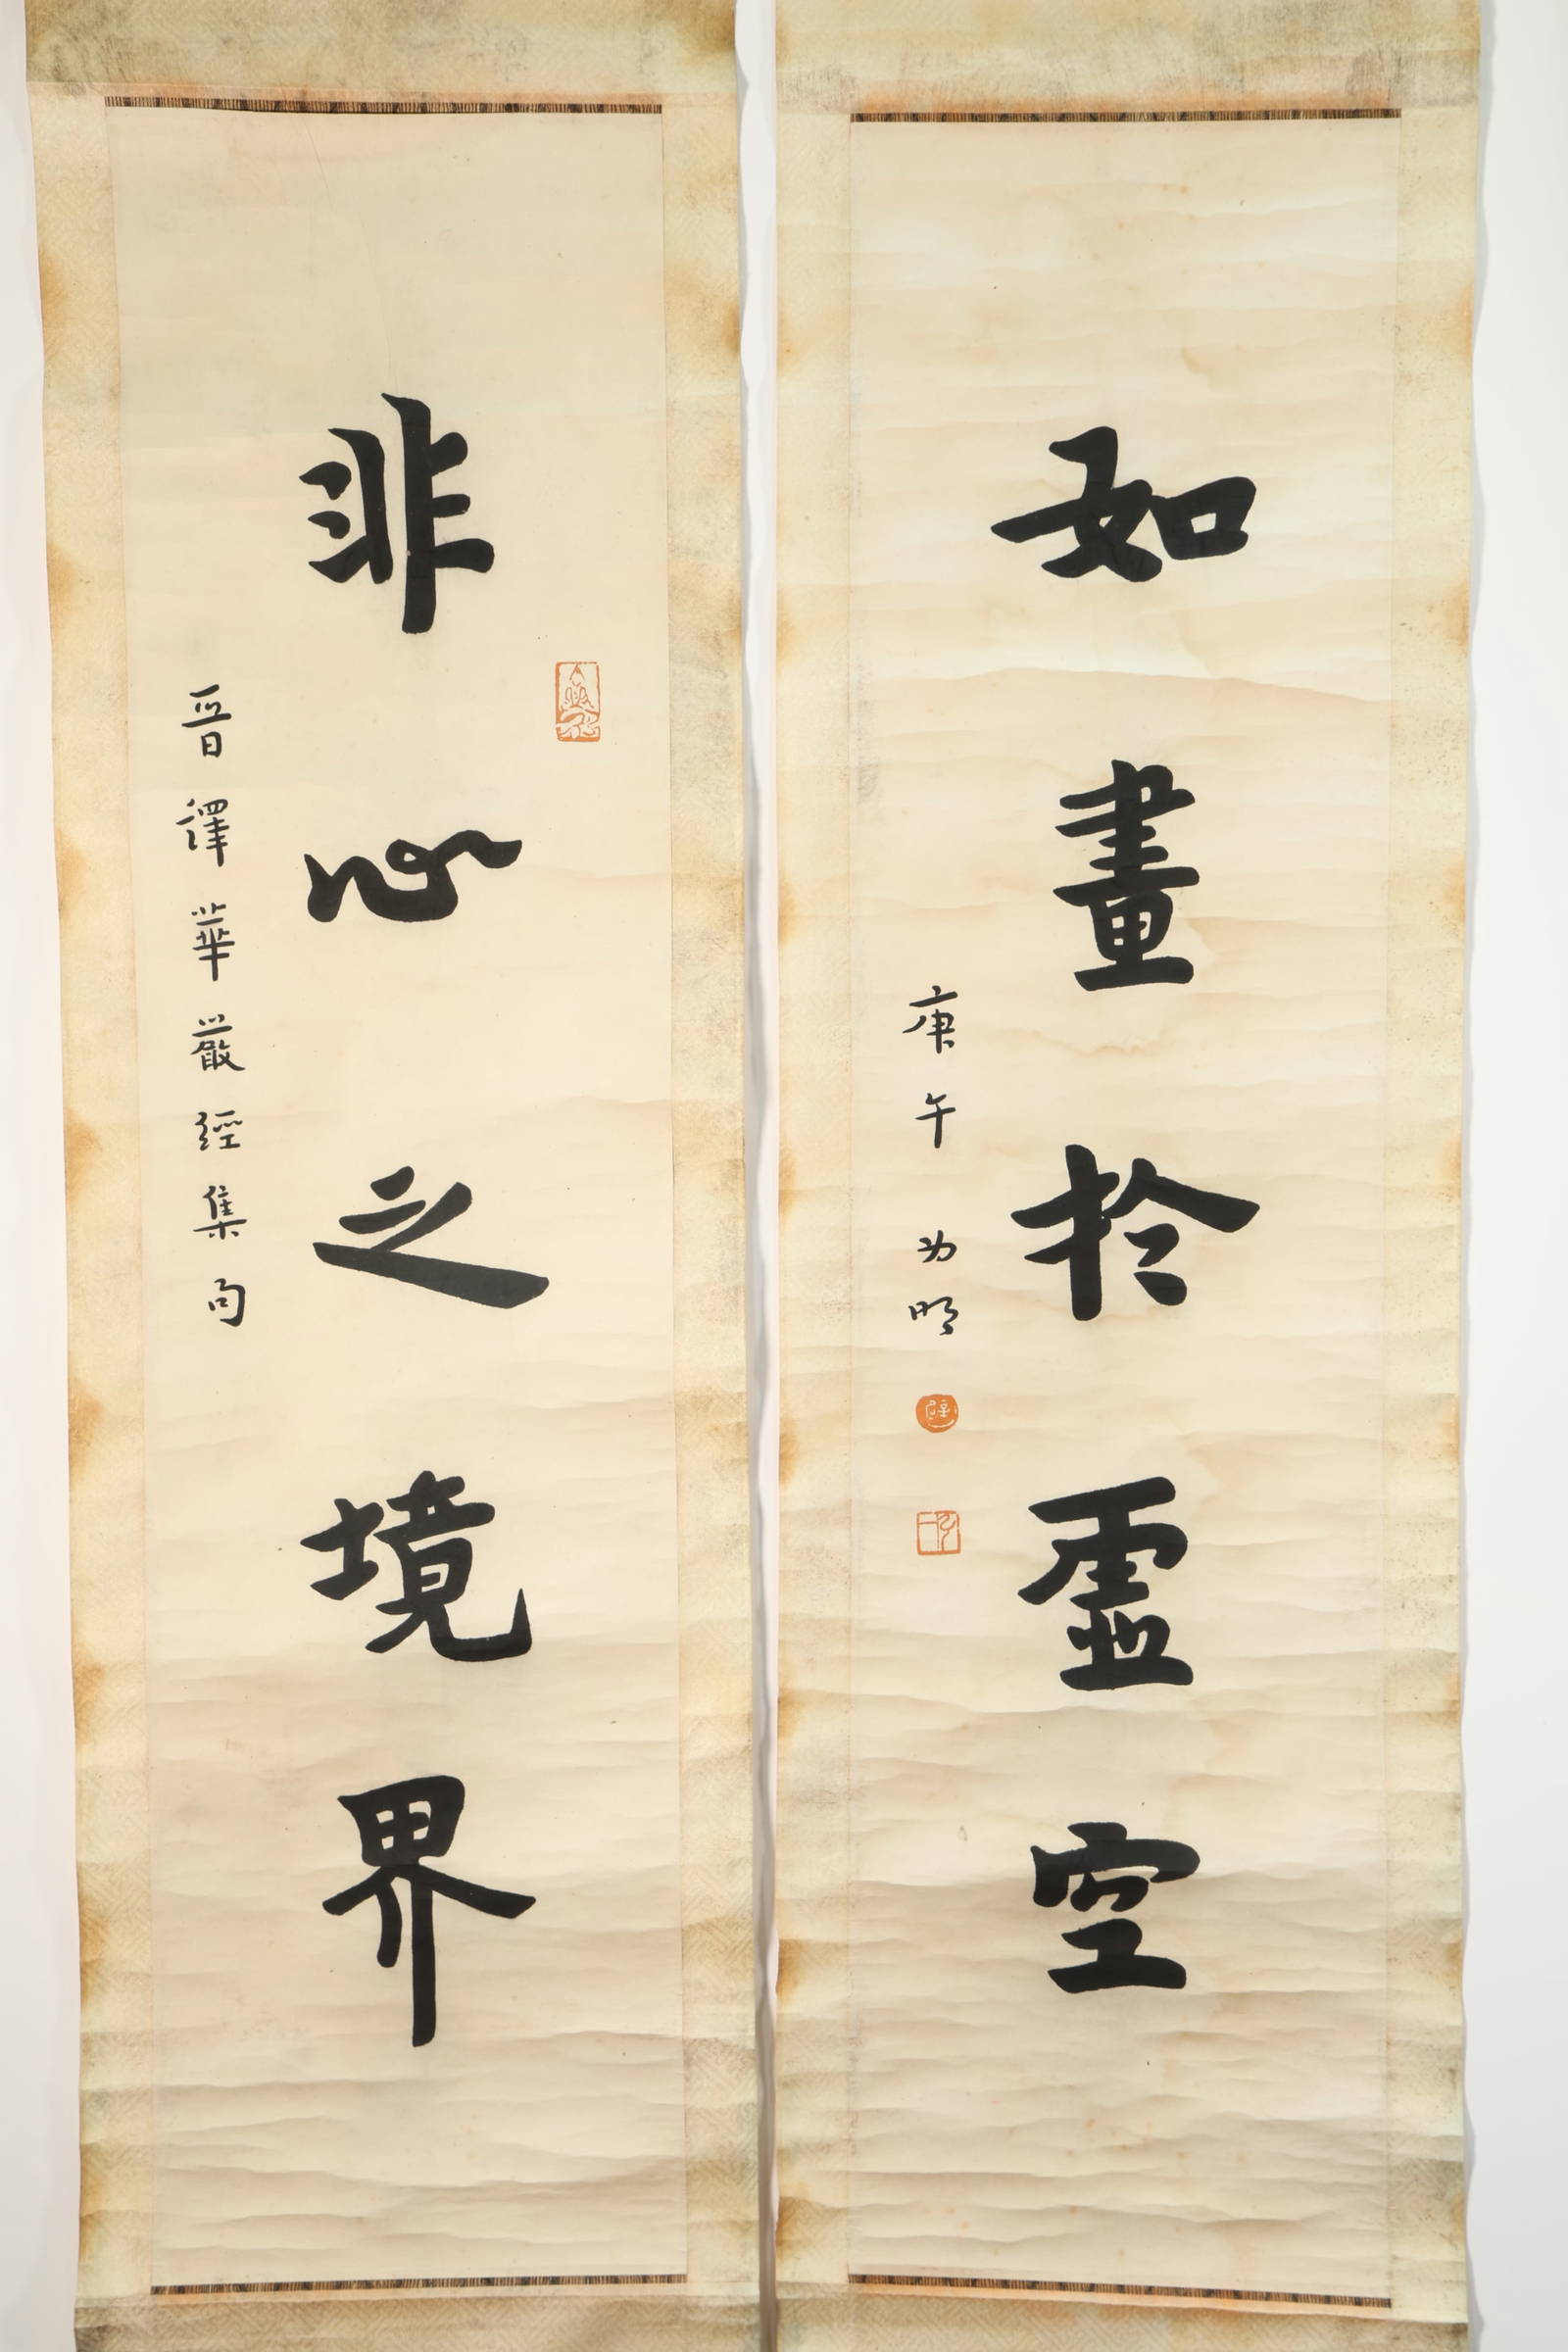 非心之境界
晉譯華嚴經集句
如畫於虛空
庚午
弘一